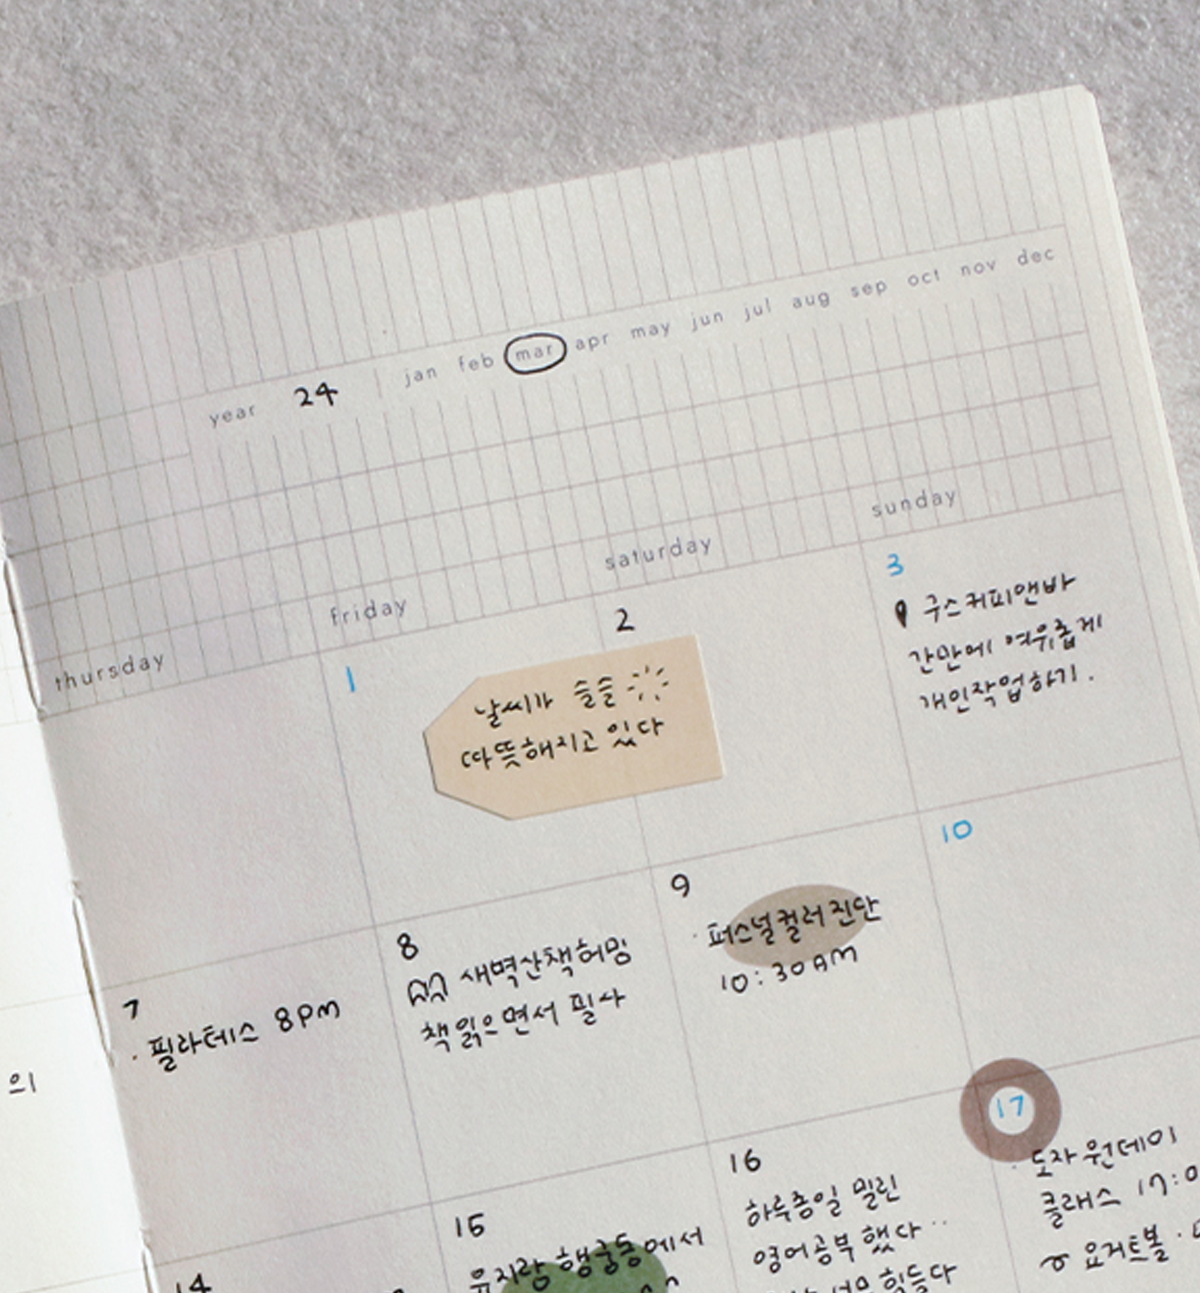 year 24 jan feb mar apr may jun jul aug sep oct nov dec
thursday friday saturday sunday
1
2
날씨가 슬슬
따뜻해지고 있다
3
쿠스커피앤바
간만에 여유롭게
개인작업하기.
7
· 필라테스 8pm
8
새벽산책허밍
책 읽으면서 필사
9
· 퍼스널컬러진단
10:30AM
10
의
14
15
유지랑 행궁동에서
16
하루종일 밀린
영어공부 했다..
힘들다
17
· 도자 원데이
클래스 17:0
요거트볼 ·